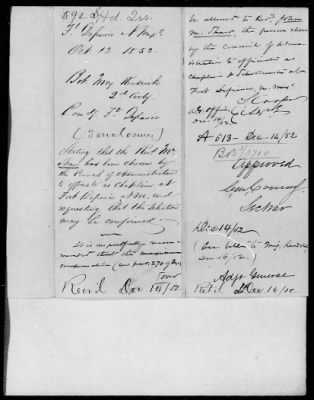 592 Hd. Qrs.
Ft Defiance N Mexo
Oct 12 1852.
Bvt. Maj Kendrick
2d Arty.
Comdg Ft. Defiance
(Enclosure)
Stating that the Revd. Mr.
has been chosen by
the Council of Administration
to officiate as Chaplain at
Fort Defiance N M, and
requesting that the selection
may be confirmed.
It is respectfully recom-
mended that the maximum
compensation
over
Recd. Dec 14/52
be allowed to Rev. John
M. the person chosen
by the Council of Admin-
istration to officiate as
chaplain & Schoolmaster at
Fort Defiance, N. Mexo
S. Cooper
A. G. Office
Dec 14/52
A 513 - Dec. 14/52
Approved
C. M. Conrad
Sec War
Dec 14/52
Dec 16/52.)
Adjt General
Dec. 16/52